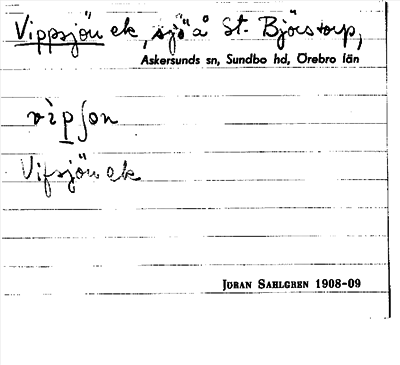 Vippsjön ek, sjö å St. Björstorp,
Askersunds sn, Sundbo hd, Örebro län
vìpʃon
Vifsjön ek
JÖRAN SAHLGREN 1908-09